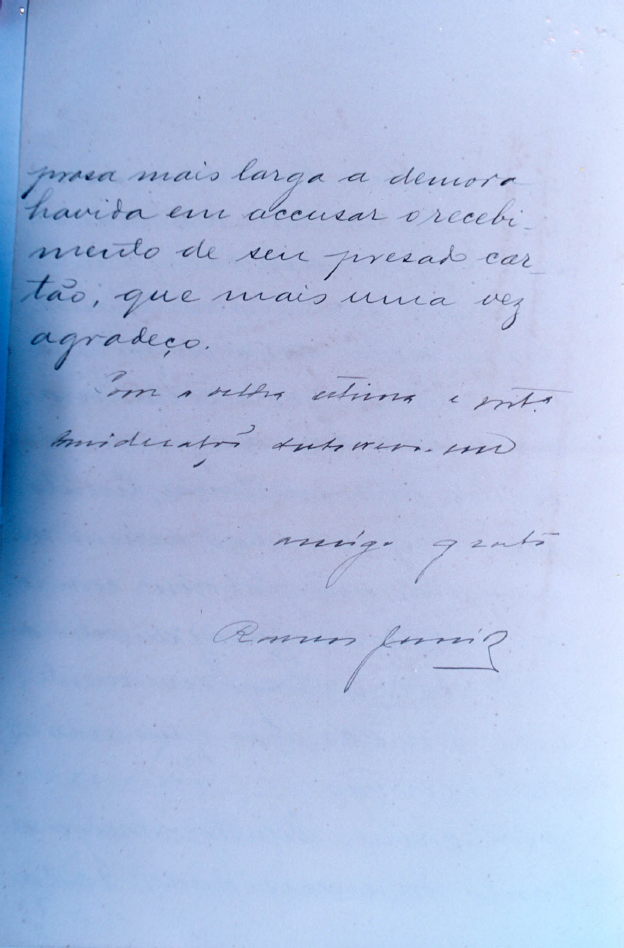 prosa mais larga a demora
havida em accusar o recebi-
mento de seu presado car-
tão, que mais uma vez
agradeço.
Com a velha estima e
subscrevo-me
amigo grato
Ramos